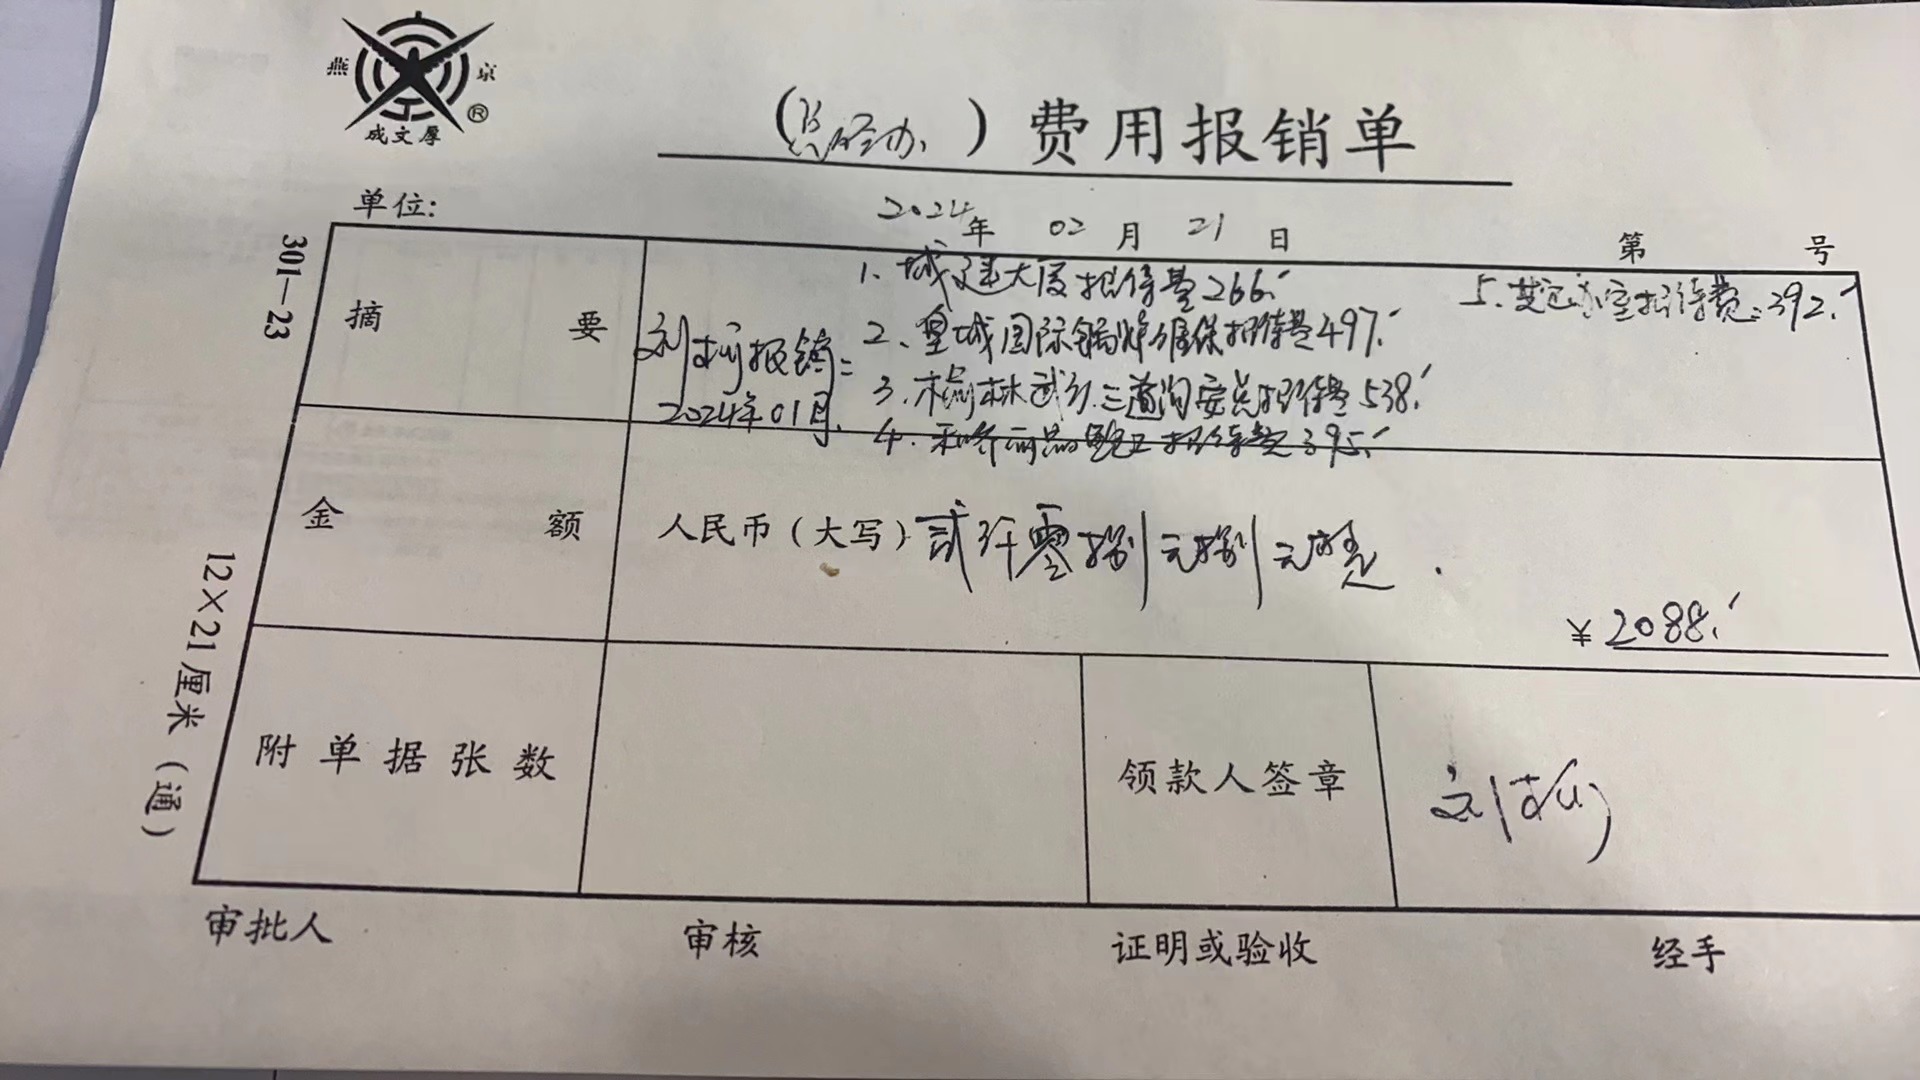 燕 京
®
成文厚
(总经办)费用报销单
单位:
2024年 02月 21日 第 号
301—23
12×21厘米(通)
摘要
刘 报销:
2024年01月.
1、城建大厦招待费266.
2、皇城国际锅炉维保招待费497.
3、榆林 三道沟安 招待费538.
4、 招待费395.
5、 招待费:392.
金额
人民币(大写)贰仟零捌元捌元整.
¥2088.
附单据张数
领款人签章
刘
审批人 审核 证明或验收 经手